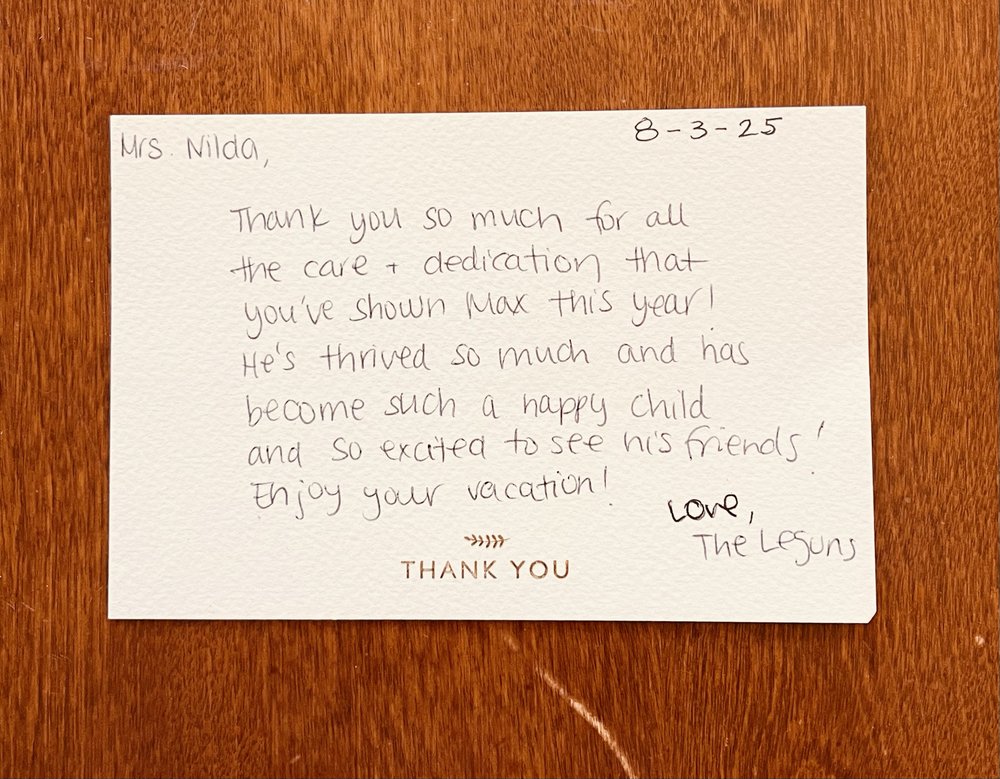 8-3-25
Mrs. Nilda,
Thank you so much for all
the care + dedication that
you've shown Max this year!
He's thrived so much and has
become such a happy child
and so excited to see his friends!
Enjoy your vacation!
Love,
The Leguns
THANK YOU